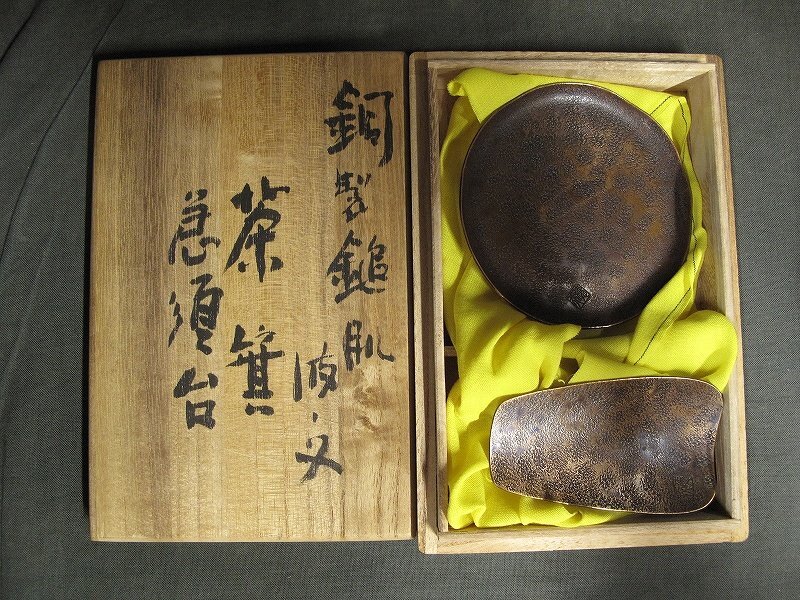 銅製鎚肌
波文
茶箕
急須台